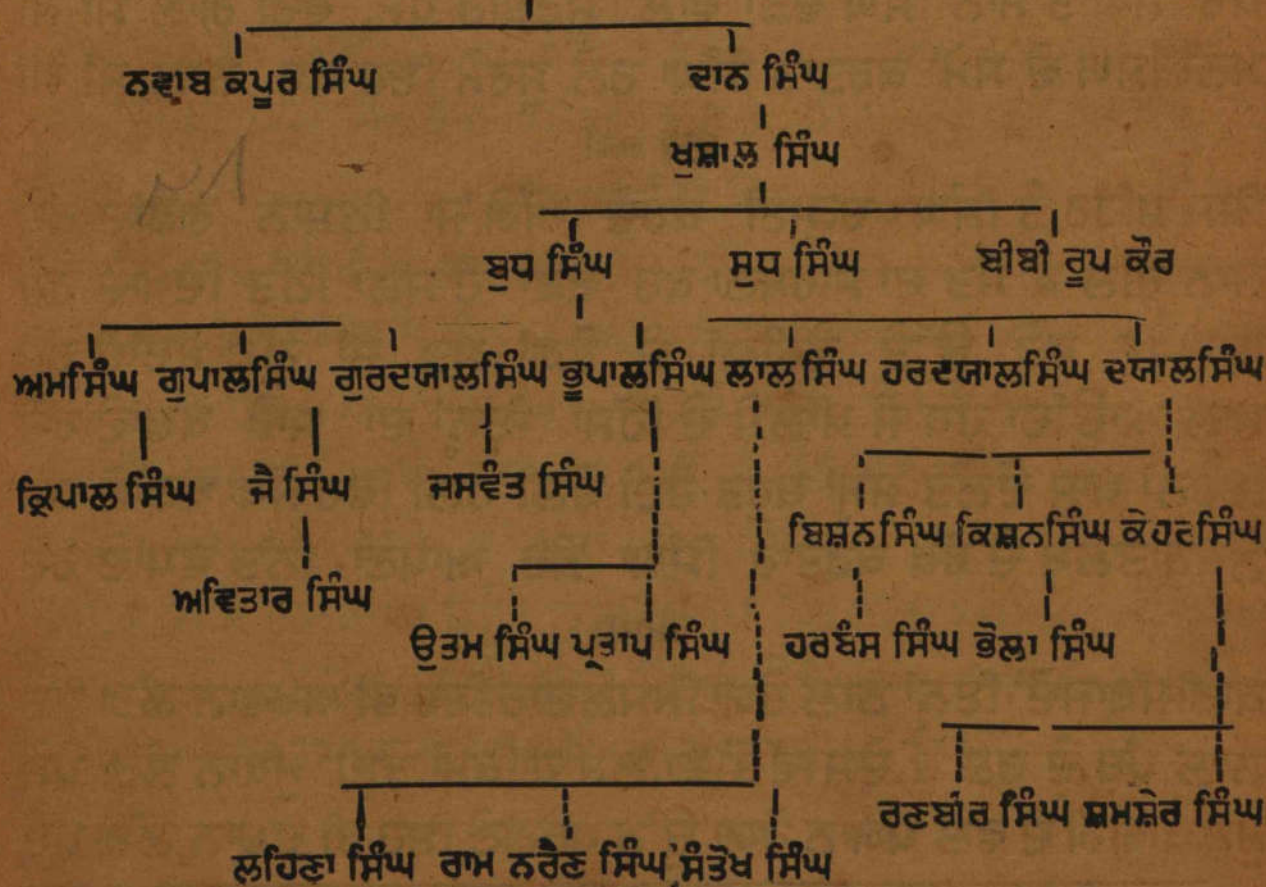 ਨਵਾਬ ਕਪੂਰ ਸਿੰਘ ਦਾਨ ਸਿੰਘ
ਖੁਸ਼ਾਲ ਸਿੰਘ
ਬੁਧ ਸਿੰਘ ਸੁਧ ਸਿੰਘ ਬੀਬੀ ਰੂਪ ਕੌਰ
ਅਮਸਿੰਘ ਗੁਪਾਲਸਿੰਘ ਗੁਰਦਯਾਲਸਿੰਘ ਭੂਪਾਲਸਿੰਘ ਲਾਲਸਿੰਘ ਹਰਦਯਾਲਸਿੰਘ ਦਯਾਲਸਿੰਘ
ਕ੍ਰਿਪਾਲ ਸਿੰਘ ਜੈ ਸਿੰਘ ਜਸਵੰਤ ਸਿੰਘ
ਬਿਸ਼ਨਸਿੰਘ ਕਿਸ਼ਨਸਿੰਘ ਕੇਹਰਸਿੰਘ
ਅਵਿਤਾਰ ਸਿੰਘ
ਉਤਮ ਸਿੰਘ ਪ੍ਰਤਾਪ ਸਿੰਘ ਹਰਬੰਸ ਸਿੰਘ ਭੋਲਾ ਸਿੰਘ
ਰਣਬੀਰ ਸਿੰਘ ਸ਼ਮਸ਼ੇਰ ਸਿੰਘ
ਲਹਿਣਾ ਸਿੰਘ ਰਾਮ ਨਰੈਣ ਸਿੰਘ ਸੰਤੋਖ ਸਿੰਘ